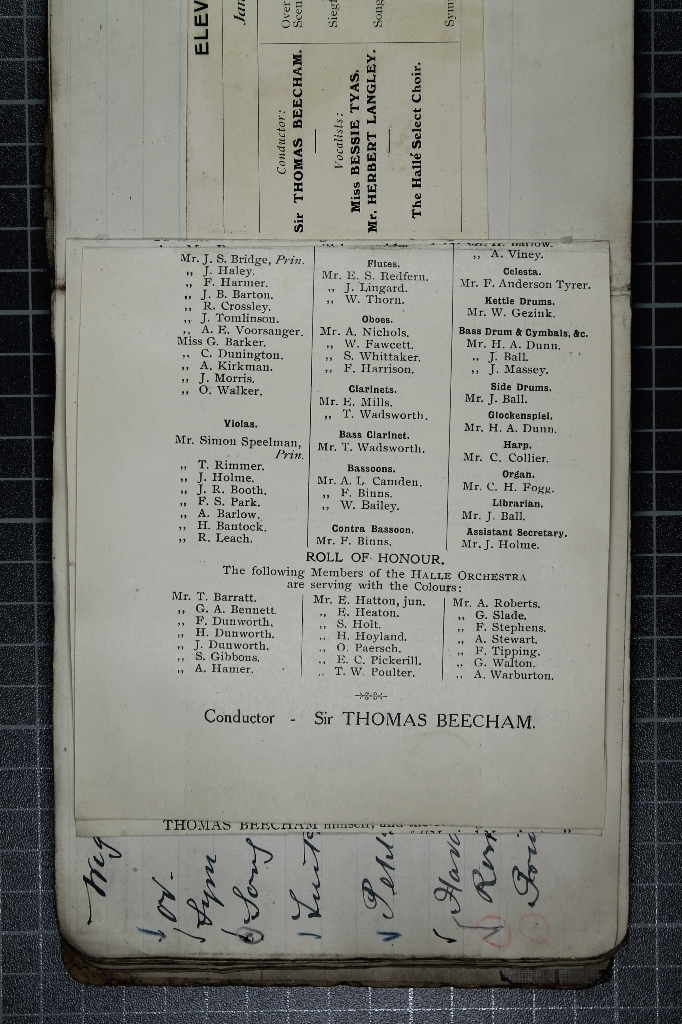 ELEV
Jan
Conductor:
Sir THOMAS BEECHAM.
Vocalists:
Miss BESSIE TYAS.
Mr. HERBERT LANGLEY.
The Hallé Select Choir.
Over
Scen
Siegf
Song
Sym
Mr. J. S. Bridge, Prin.
,, J. Haley.
,, F. Harmer.
,, J. B. Barton.
,, R. Crossley.
,, J. Tomlinson.
,, A. E. Voorsanger.
Miss G. Barker.
,, C. Dunington.
,, A. Kirkman.
,, J. Morris.
,, O. Walker.
Violas.
Mr. Simon Speelman,
Prin.
,, T. Rimmer.
,, J. Holme.
,, J. R. Booth.
,, F. S. Park.
,, A. Barlow.
,, H. Bantock.
,, R. Leach.
Flutes.
Mr. E. S. Redfern.
,, J. Lingard.
,, W. Thorn.
Oboes.
Mr. A. Nichols.
,, W. Fawcett.
,, S. Whittaker.
,, F. Harrison.
Clarinets.
Mr. E. Mills.
,, T. Wadsworth.
Bass Clarinet.
Mr. T. Wadsworth.
Bassoons.
Mr. A. L. Camden.
,, F. Binns.
,, W. Bailey.
Contra Bassoon.
Mr. F. Binns.
,, H. Barlow.
,, A. Viney.
Celesta.
Mr. F. Anderson Tyrer.
Kettle Drums.
Mr. W. Gezink.
Bass Drum & Cymbals, &c.
Mr. H. A. Dunn.
,, J. Ball.
,, J. Massey.
Side Drums.
Mr. J. Ball.
Glockenspiel.
Mr. H. A. Dunn.
Harp.
Mr. C. Collier.
Organ.
Mr. C. H. Fogg.
Librarian.
Mr. J. Ball.
Assistant Secretary.
Mr. J. Holme.
ROLL OF HONOUR.
The following Members of the HALLE ORCHESTRA
are serving with the Colours:
Mr. T. Barratt.
,, G. A. Bennett.
,, F. Dunworth.
,, H. Dunworth.
,, J. Dunworth.
,, S. Gibbons.
,, A. Hamer.
Mr. E. Hatton, jun.
,, E. Heaton.
,, S. Holt.
,, H. Hoyland.
,, O. Paersch.
,, E. C. Pickerill.
,, T. W. Poulter.
Mr. A. Roberts.
,, G. Slade.
,, F. Stephens.
,, A. Stewart.
,, F. Tipping.
,, G. Walton.
,, A. Warburton.
Conductor - Sir THOMAS BEECHAM.
THOMAS BEECHAM himself, and the
Ov.
Sym
Song